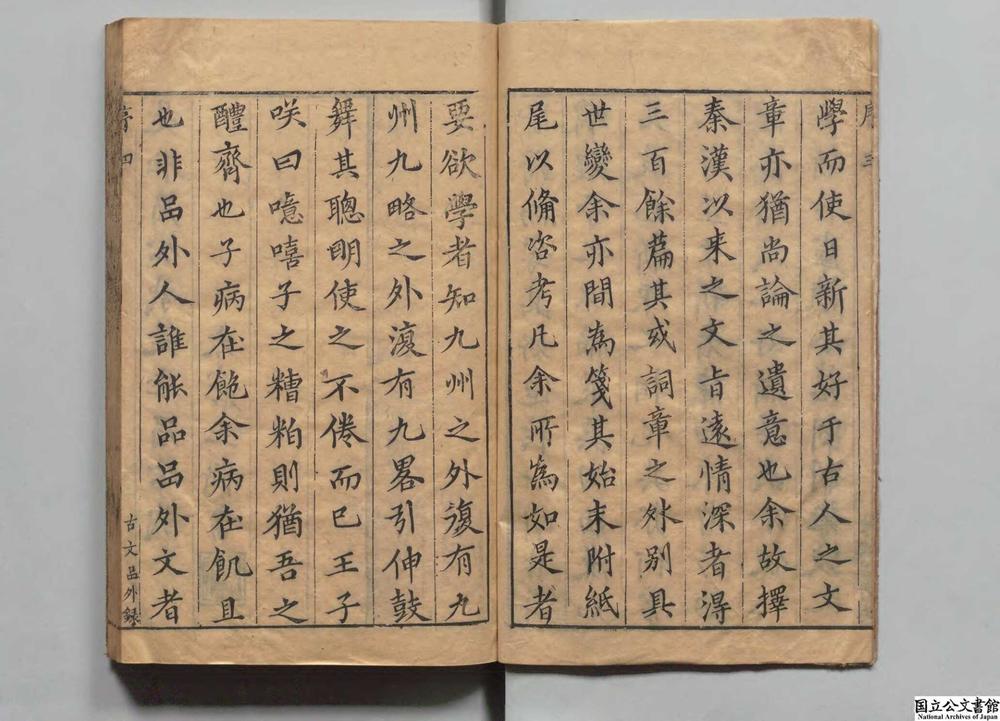 序 三
學而使日新其好于古人之文
章亦猶尚論之遺意也余故擇
秦漢以来之文旨遠情深者淂
三百餘篇其或詞章之外别具
世變余亦間為箋其始末附紙
尾以備咨考凡余所為如是者
要欲學者知九州之外復有九
州九略之外澓有九畧引伸鼓
舞其聰明使之不倦而已王子
咲曰噫嘻子之糟粕則猶吾之
醴齊也子病在飽余病在飢且
也非品外人誰能品品外文者
序 四
古文品外錄
国立公文書館
National Archives of Japan